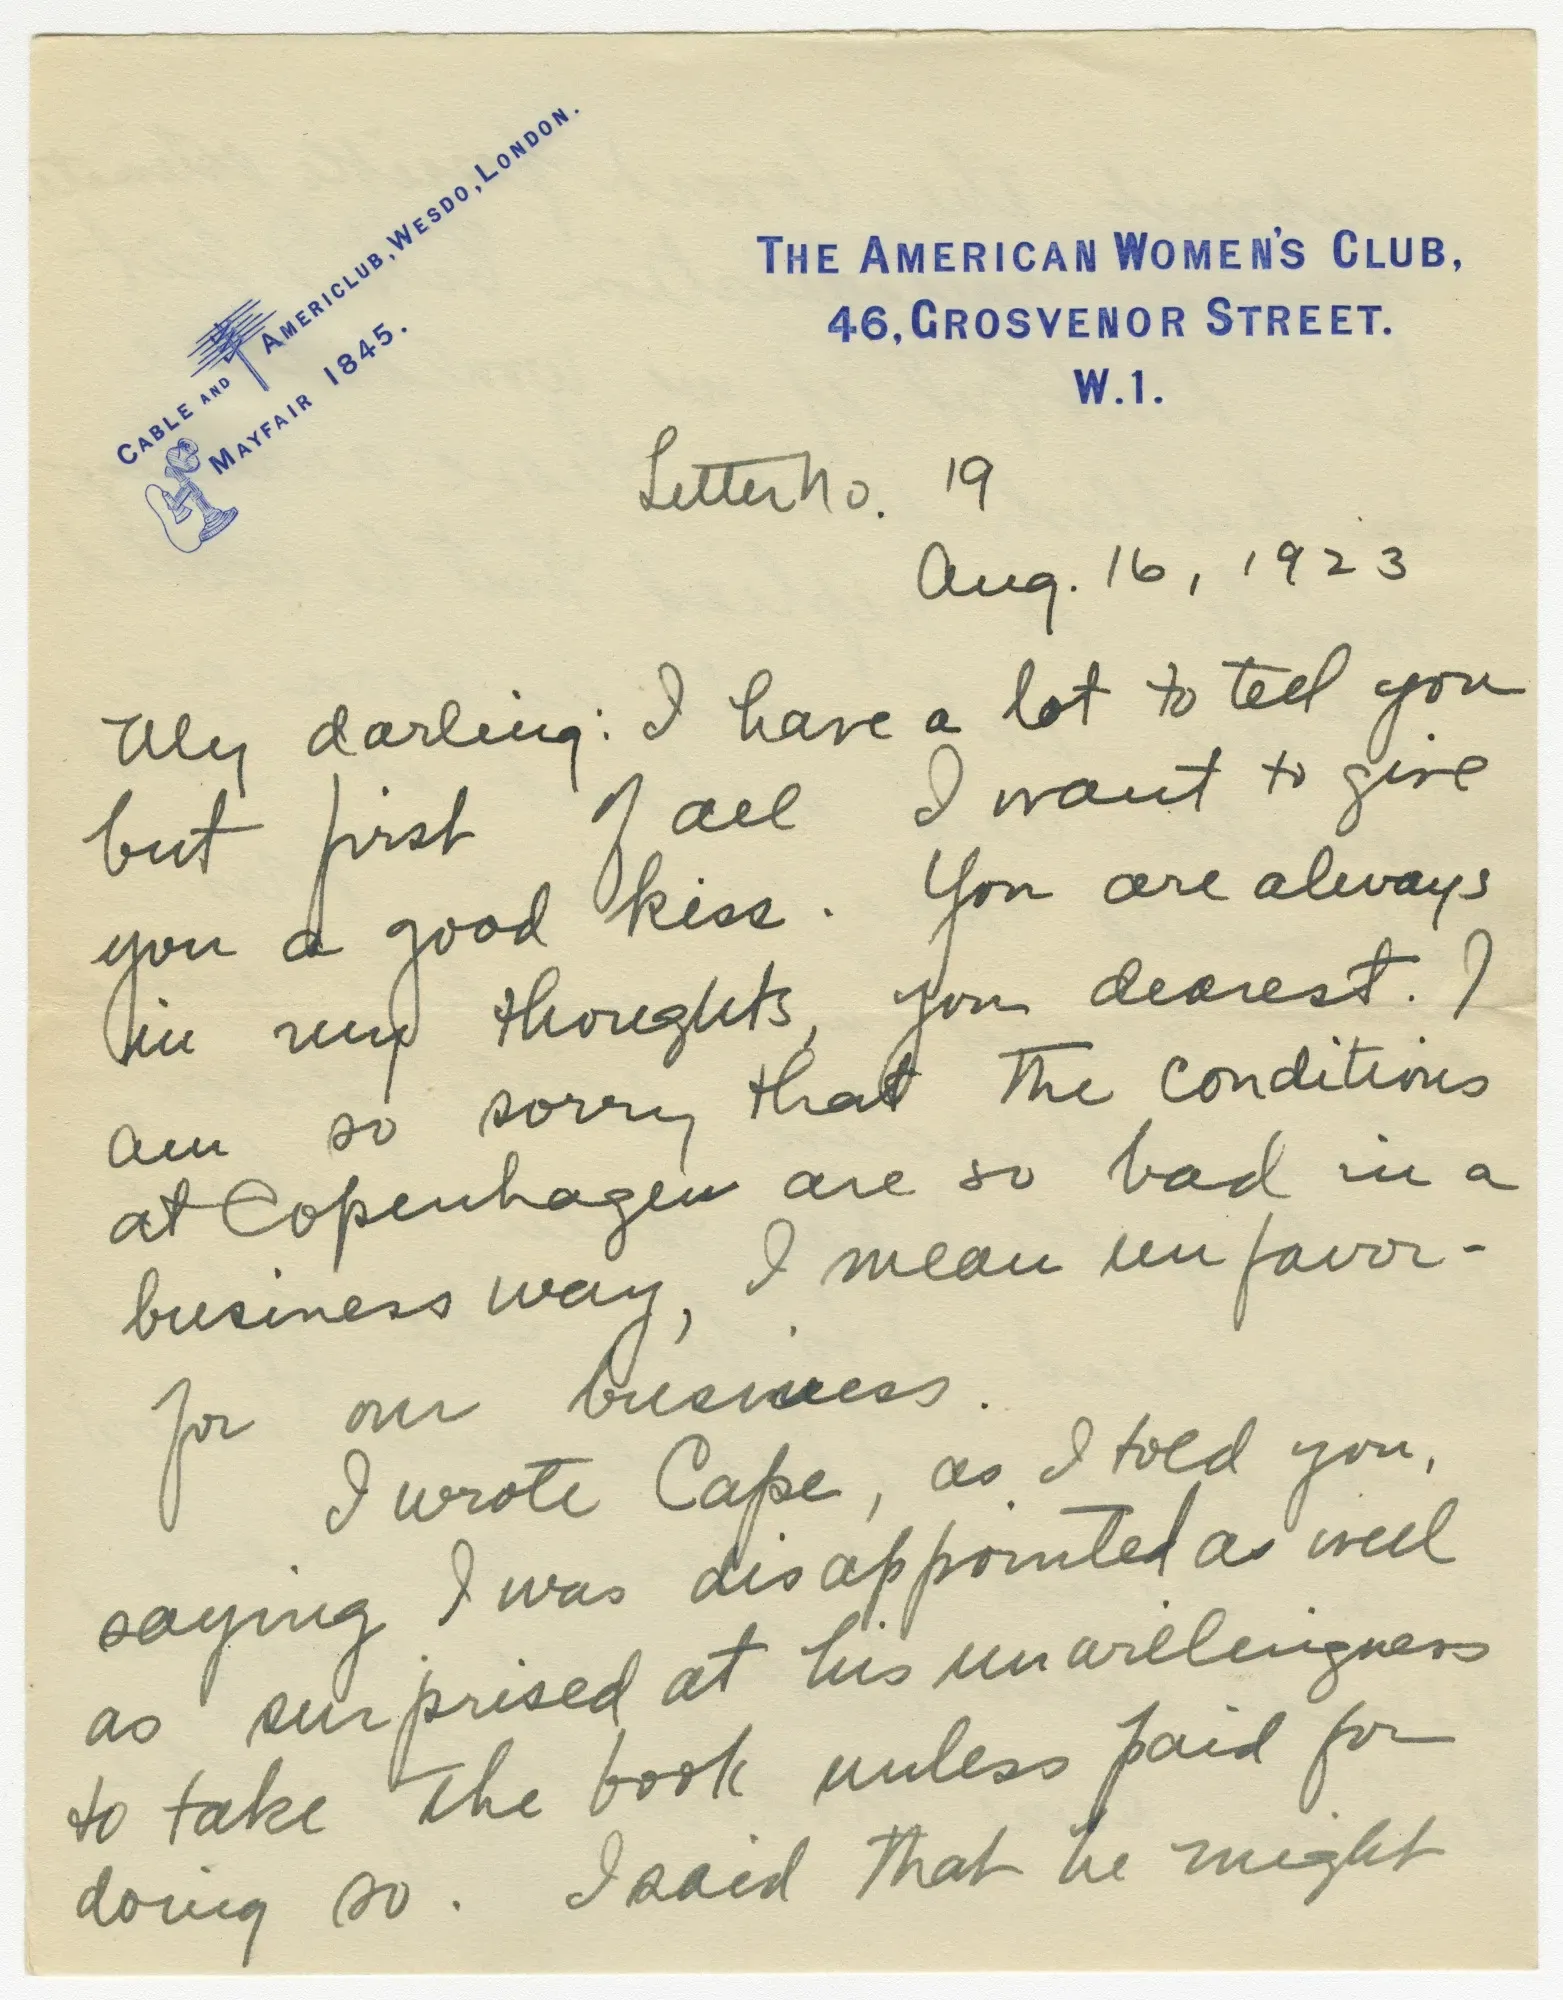 CABLE AND AMERICLUB, WESDO, LONDON.
MAYFAIR 1845.
THE AMERICAN WOMEN'S CLUB,
46, GROSVENOR STREET.
W.1.
Letter No. 19
Aug. 16, 1923
My darling: I have a lot to tell you
but first of all I want to give
you a good kiss. You are always
in my thoughts, you dearest. I
am so sorry that the conditions
at Copenhagen are so bad in a
business way, I mean unfavor-
for our business.
I wrote Cape, as I told you,
saying I was disappointed as well
as surprised at his unwillingness
to take the book unless paid for
doing so. I said that he might